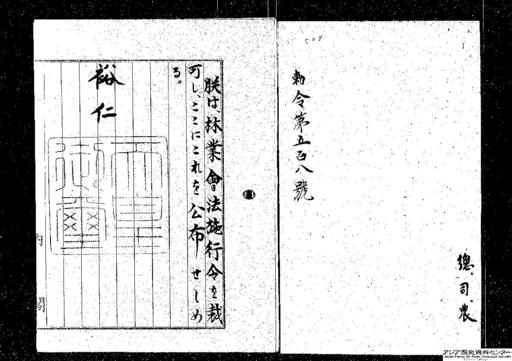 勅令第五百八號
總、司、農
朕は、林業會法施行令を裁
可し、ここにこれを公布せしめ
る。
裕仁
天皇御璽
内閣
アジア歴史資料センター